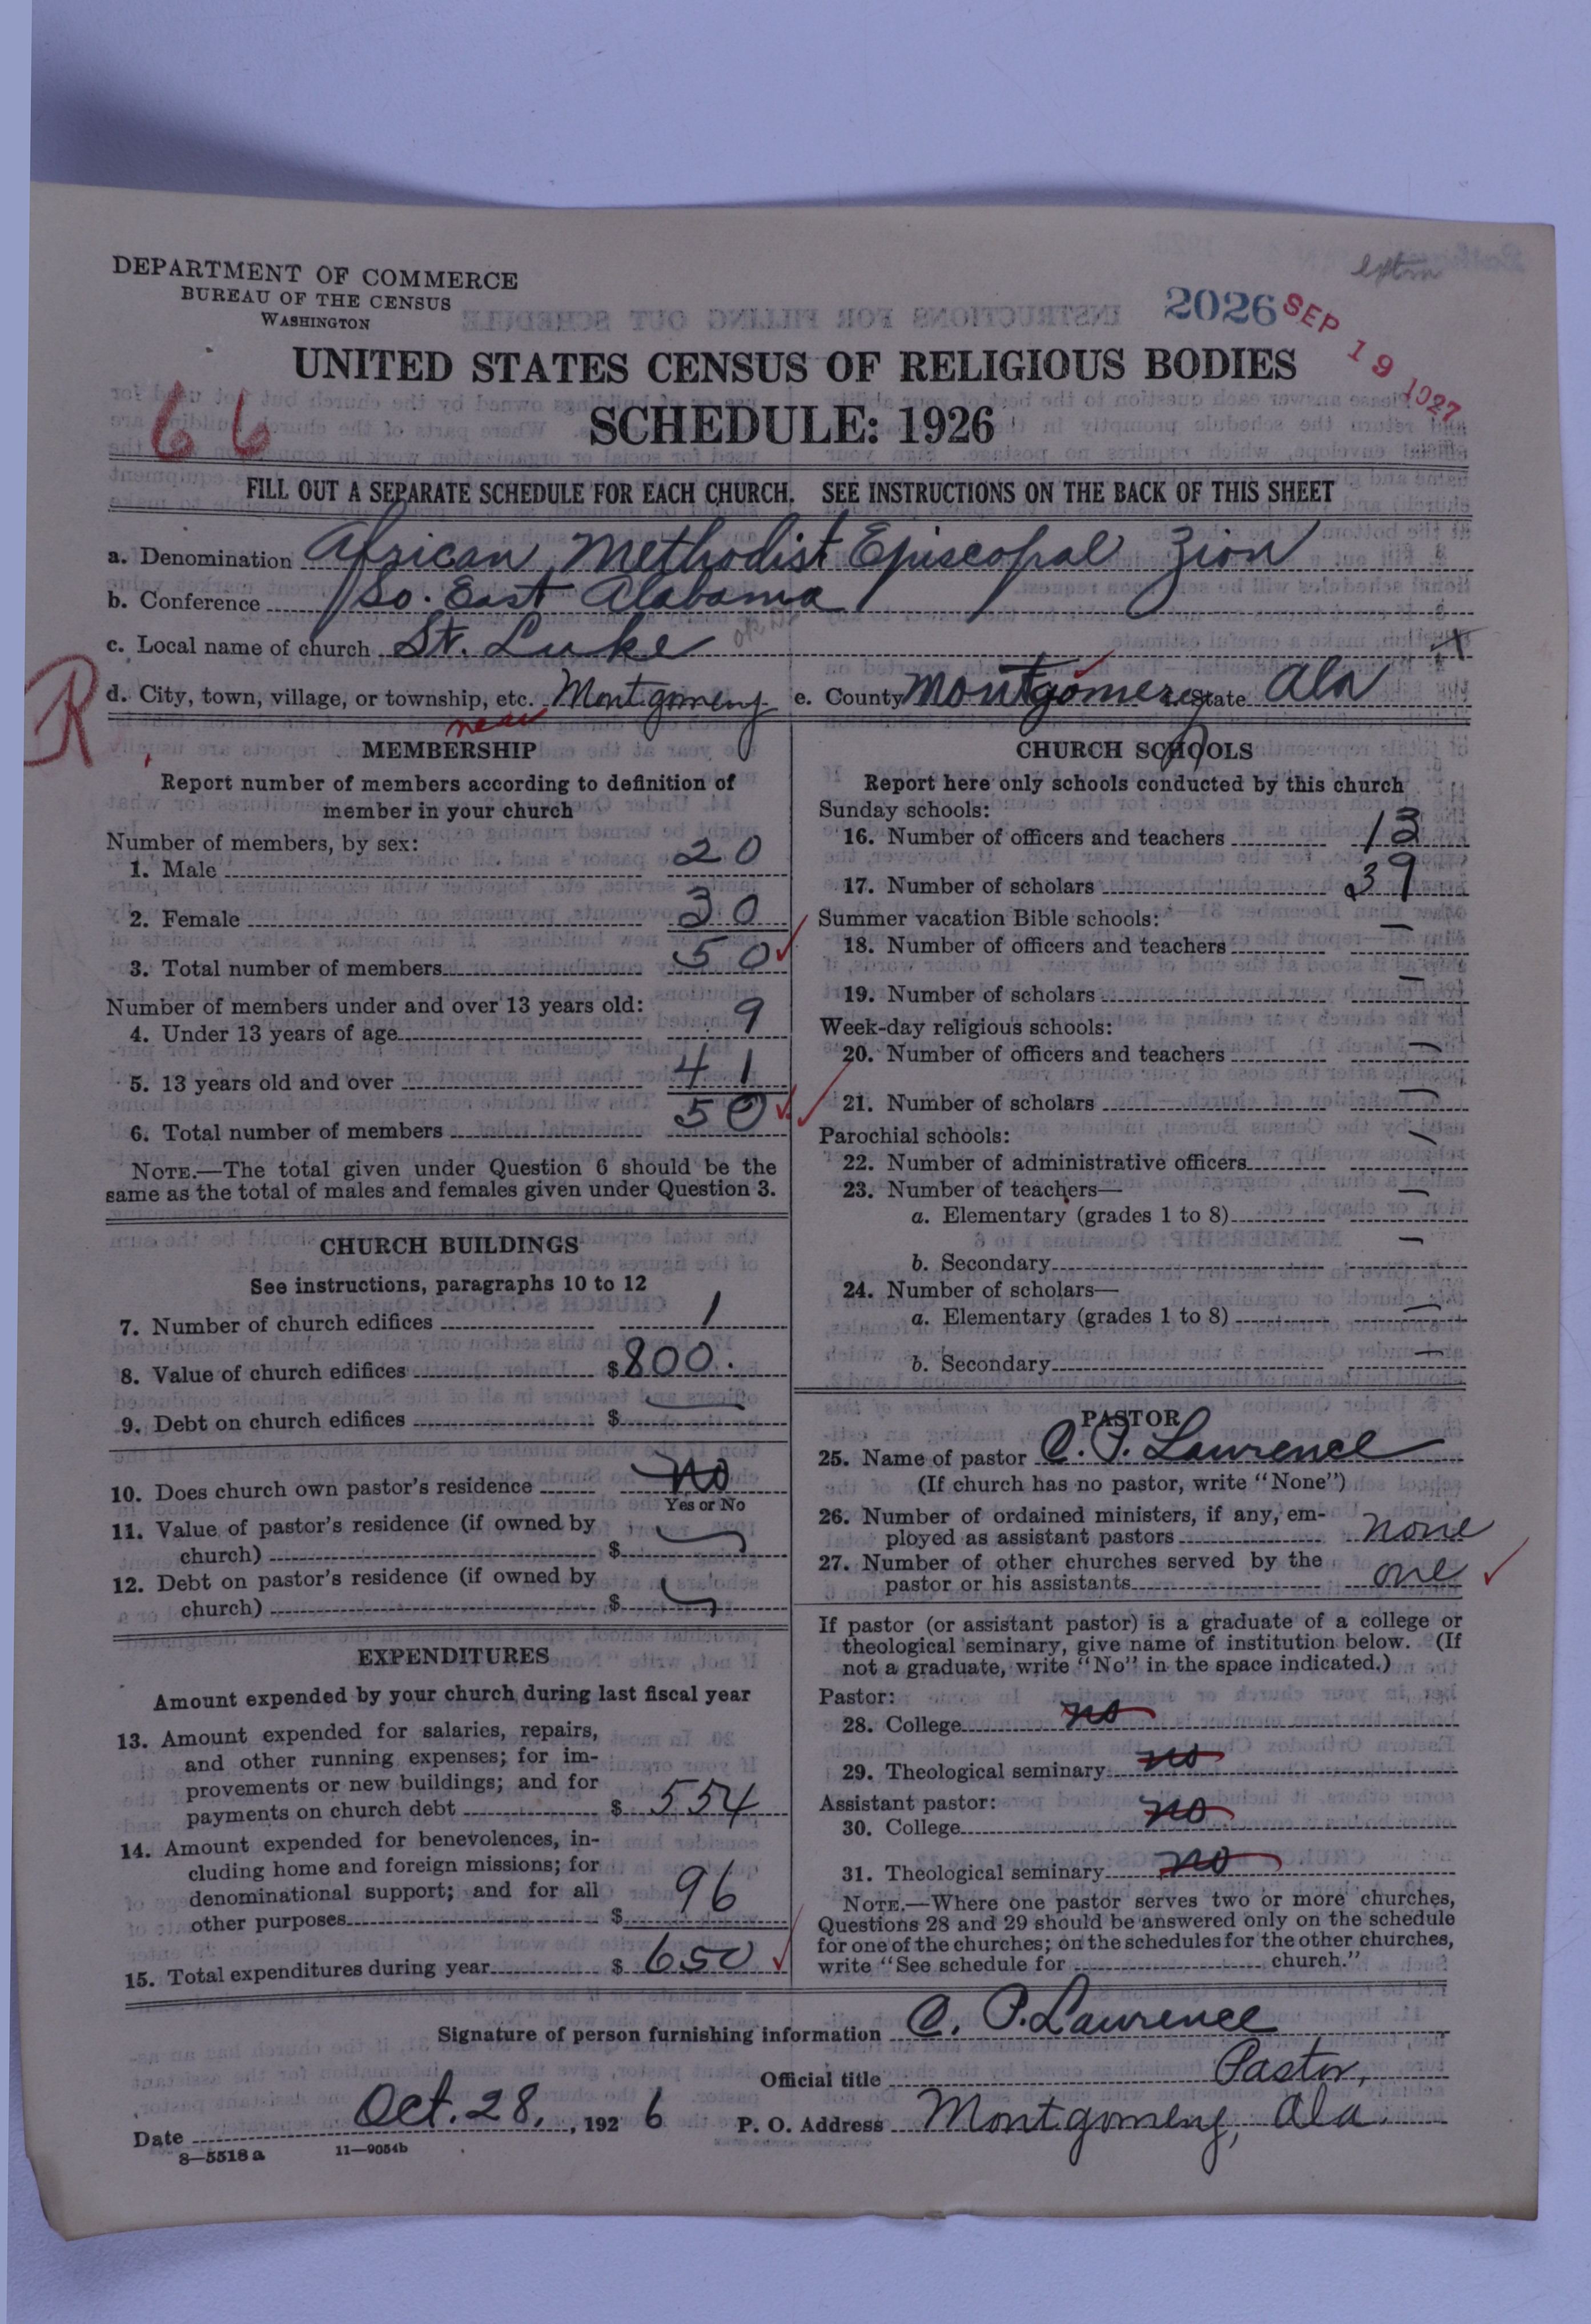 DEPARTMENT OF COMMERCE
BUREAU OF THE CENSUS
WASHINGTON
2026
SEP 19 1927
UNITED STATES CENSUS OF RELIGIOUS BODIES
66
SCHEDULE: 1926
FILL OUT A SEPARATE SCHEDULE FOR EACH CHURCH. SEE INSTRUCTIONS ON THE BACK OF THIS SHEET
a. Denomination African Methodist Episcopal Zion
b. Conference So. East Alabama
c. Local name of church St. Luke
R
d. City, town, village, or township, etc. Montgomery e. County Montgomery State Ala
near
MEMBERSHIP
Report number of members according to definition of
member in your church
Number of members, by sex:
1. Male 20
2. Female 30
3. Total number of members 50
Number of members under and over 13 years old:
4. Under 13 years of age 9
5. 13 years old and over 41
6. Total number of members 50
NOTE.—The total given under Question 6 should be the
same as the total of males and females given under Question 3.
CHURCH BUILDINGS
See instructions, paragraphs 10 to 12
7. Number of church edifices 1
8. Value of church edifices $800.
9. Debt on church edifices $ —
10. Does church own pastor's residence no
Yes or No
11. Value of pastor's residence (if owned by
church) $
12. Debt on pastor's residence (if owned by
church) $
EXPENDITURES
Amount expended by your church during last fiscal year
13. Amount expended for salaries, repairs,
and other running expenses; for im-
provements or new buildings; and for
payments on church debt $ 554
14. Amount expended for benevolences, in-
cluding home and foreign missions; for
denominational support; and for all
other purposes $ 96
15. Total expenditures during year $ 650
CHURCH SCHOOLS
Report here only schools conducted by this church
Sunday schools:
16. Number of officers and teachers 13
17. Number of scholars 39
Summer vacation Bible schools:
18. Number of officers and teachers —
19. Number of scholars —
Week-day religious schools:
20. Number of officers and teachers —
21. Number of scholars —
Parochial schools:
22. Number of administrative officers —
23. Number of teachers—
a. Elementary (grades 1 to 8) —
b. Secondary —
24. Number of scholars—
a. Elementary (grades 1 to 8) —
b. Secondary —
PASTOR
25. Name of pastor C. P. Lawrence
(If church has no pastor, write "None")
26. Number of ordained ministers, if any, em-
ployed as assistant pastors none
27. Number of other churches served by the
pastor or his assistants one
If pastor (or assistant pastor) is a graduate of a college or
theological seminary, give name of institution below. (If
not a graduate, write "No" in the space indicated.)
Pastor:
28. College no
29. Theological seminary no
Assistant pastor:
30. College no
31. Theological seminary no
NOTE.—Where one pastor serves two or more churches,
Questions 28 and 29 should be answered only on the schedule
for one of the churches; on the schedules for the other churches,
write "See schedule for church."
Signature of person furnishing information C. P. Lawrence
Official title Pastor,
Date Oct. 28, , 1926 P. O. Address Montgomery, Ala.
8—5518a 11—9054b